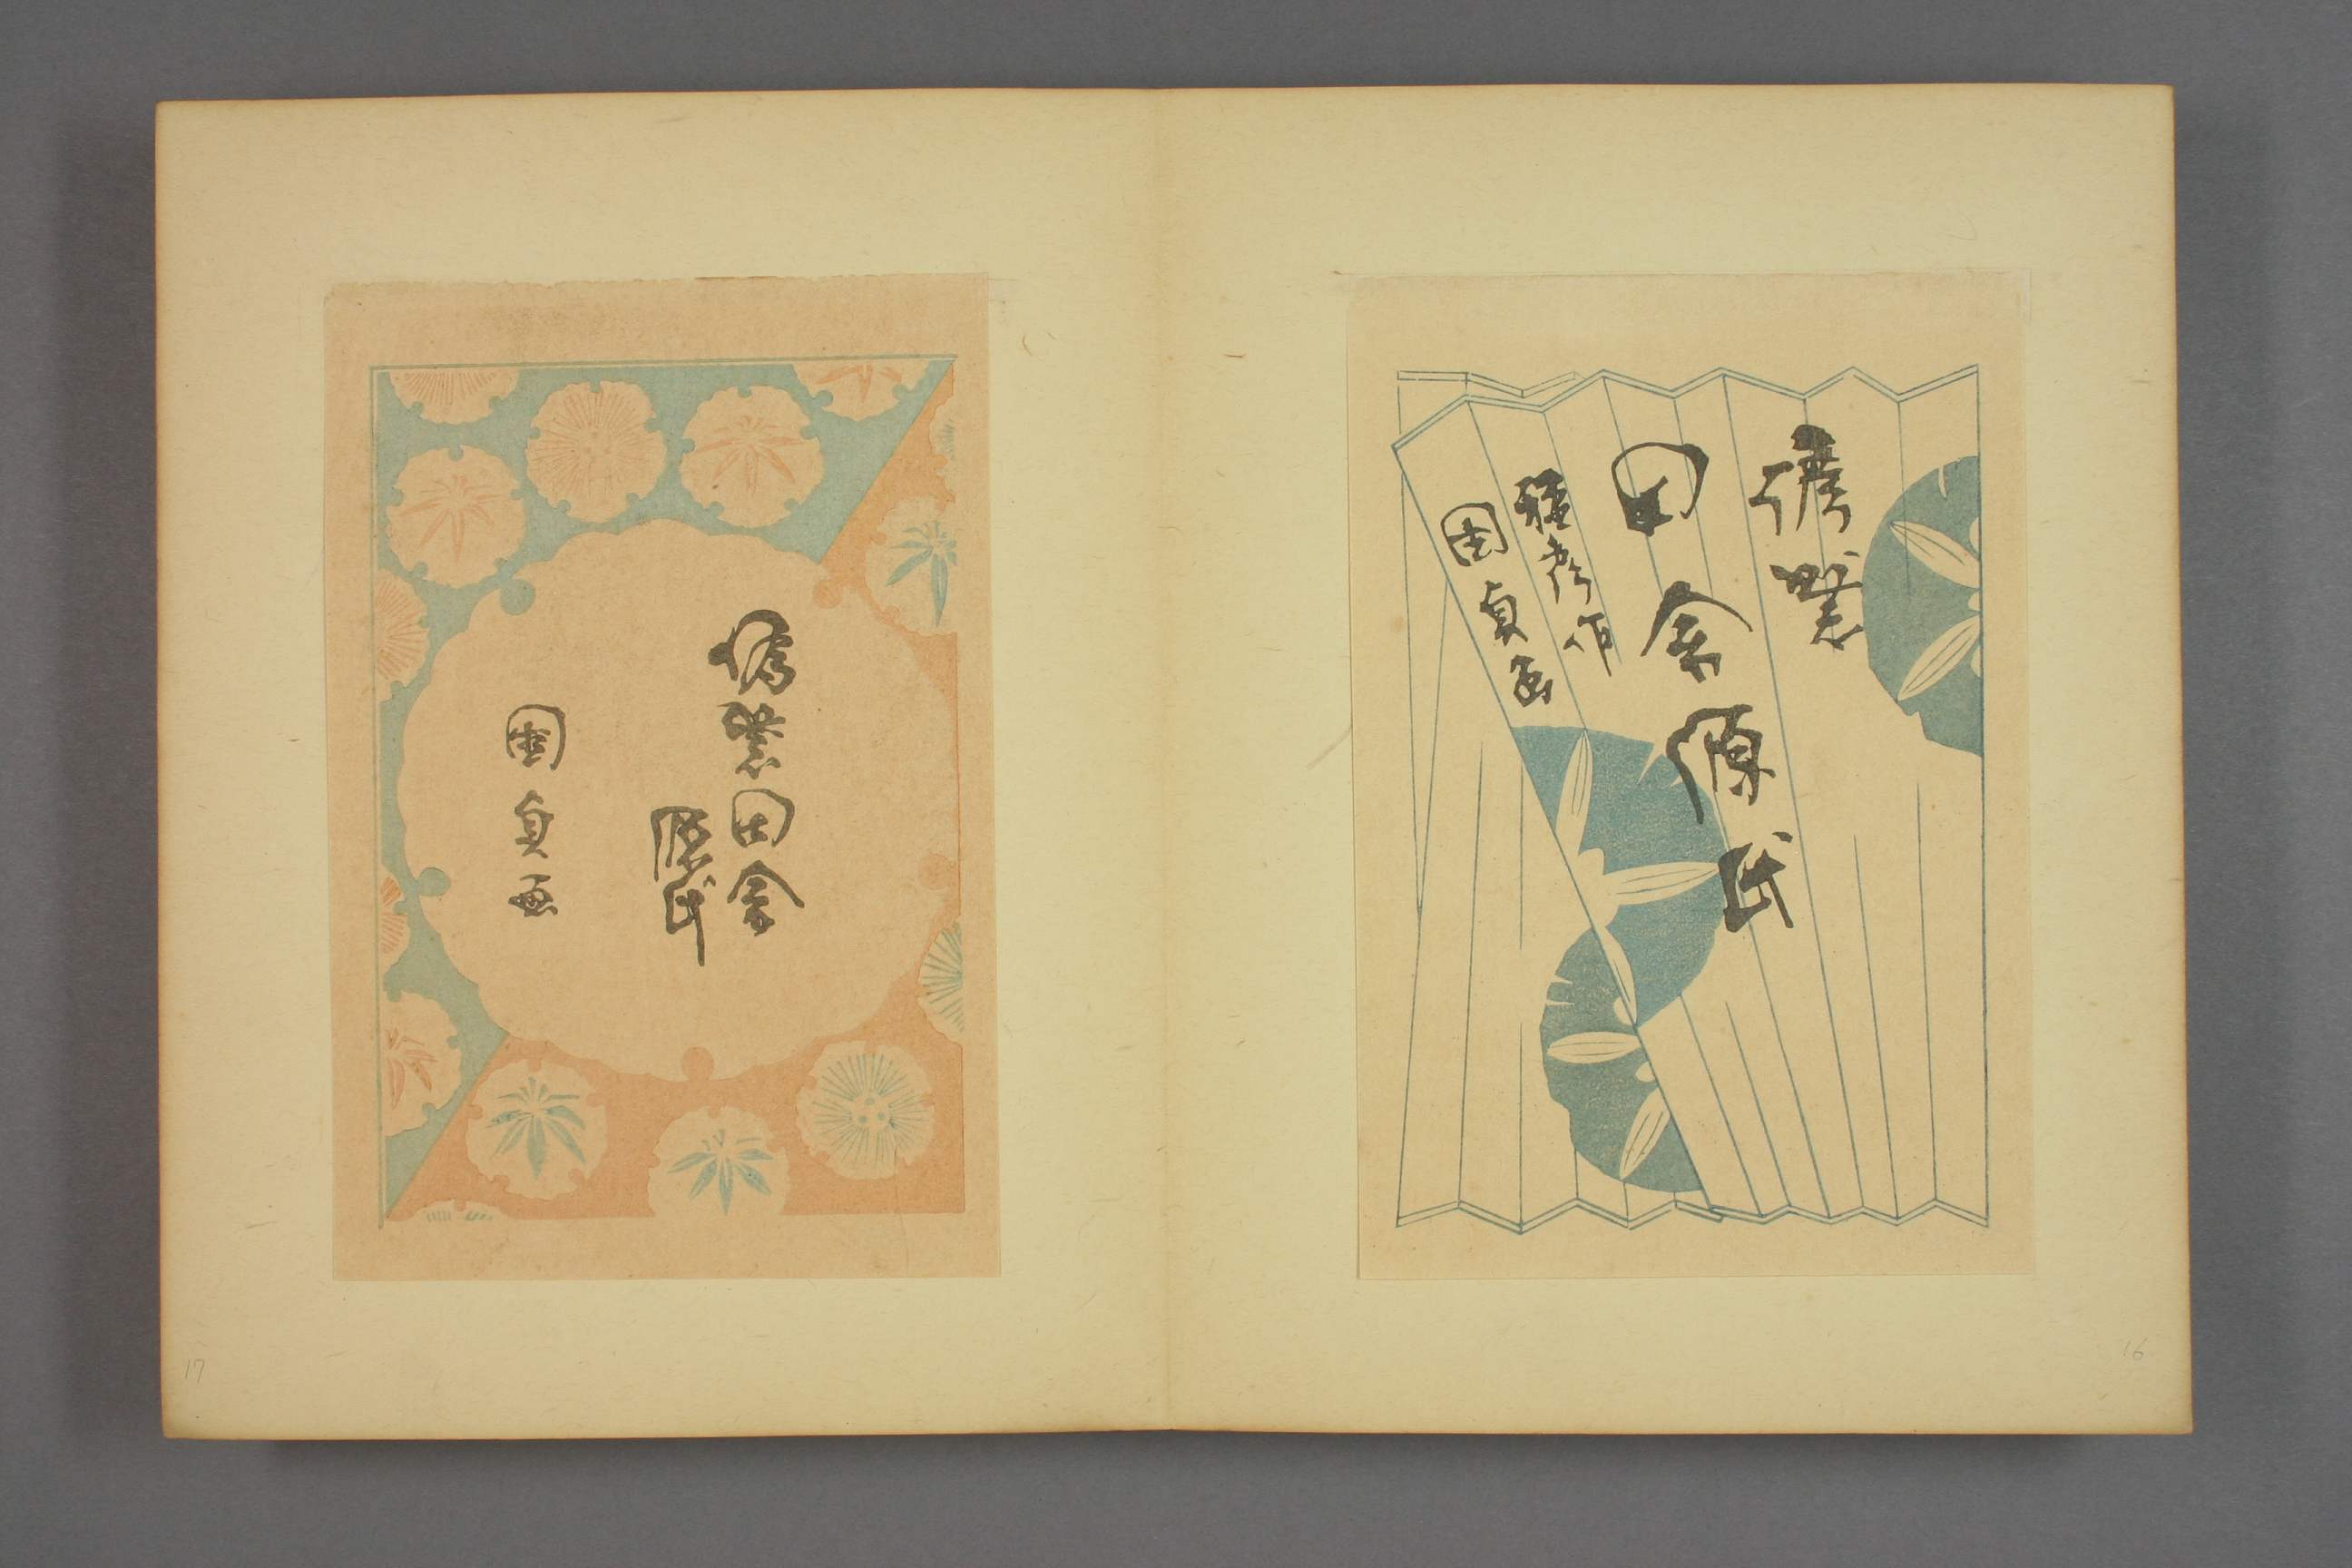 偐紫
田舎源氏
種彦作
国貞画
16
偐紫田舎
源氏
国貞画
17